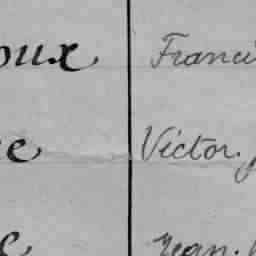 oux Franci
e Victor.
e Jean.